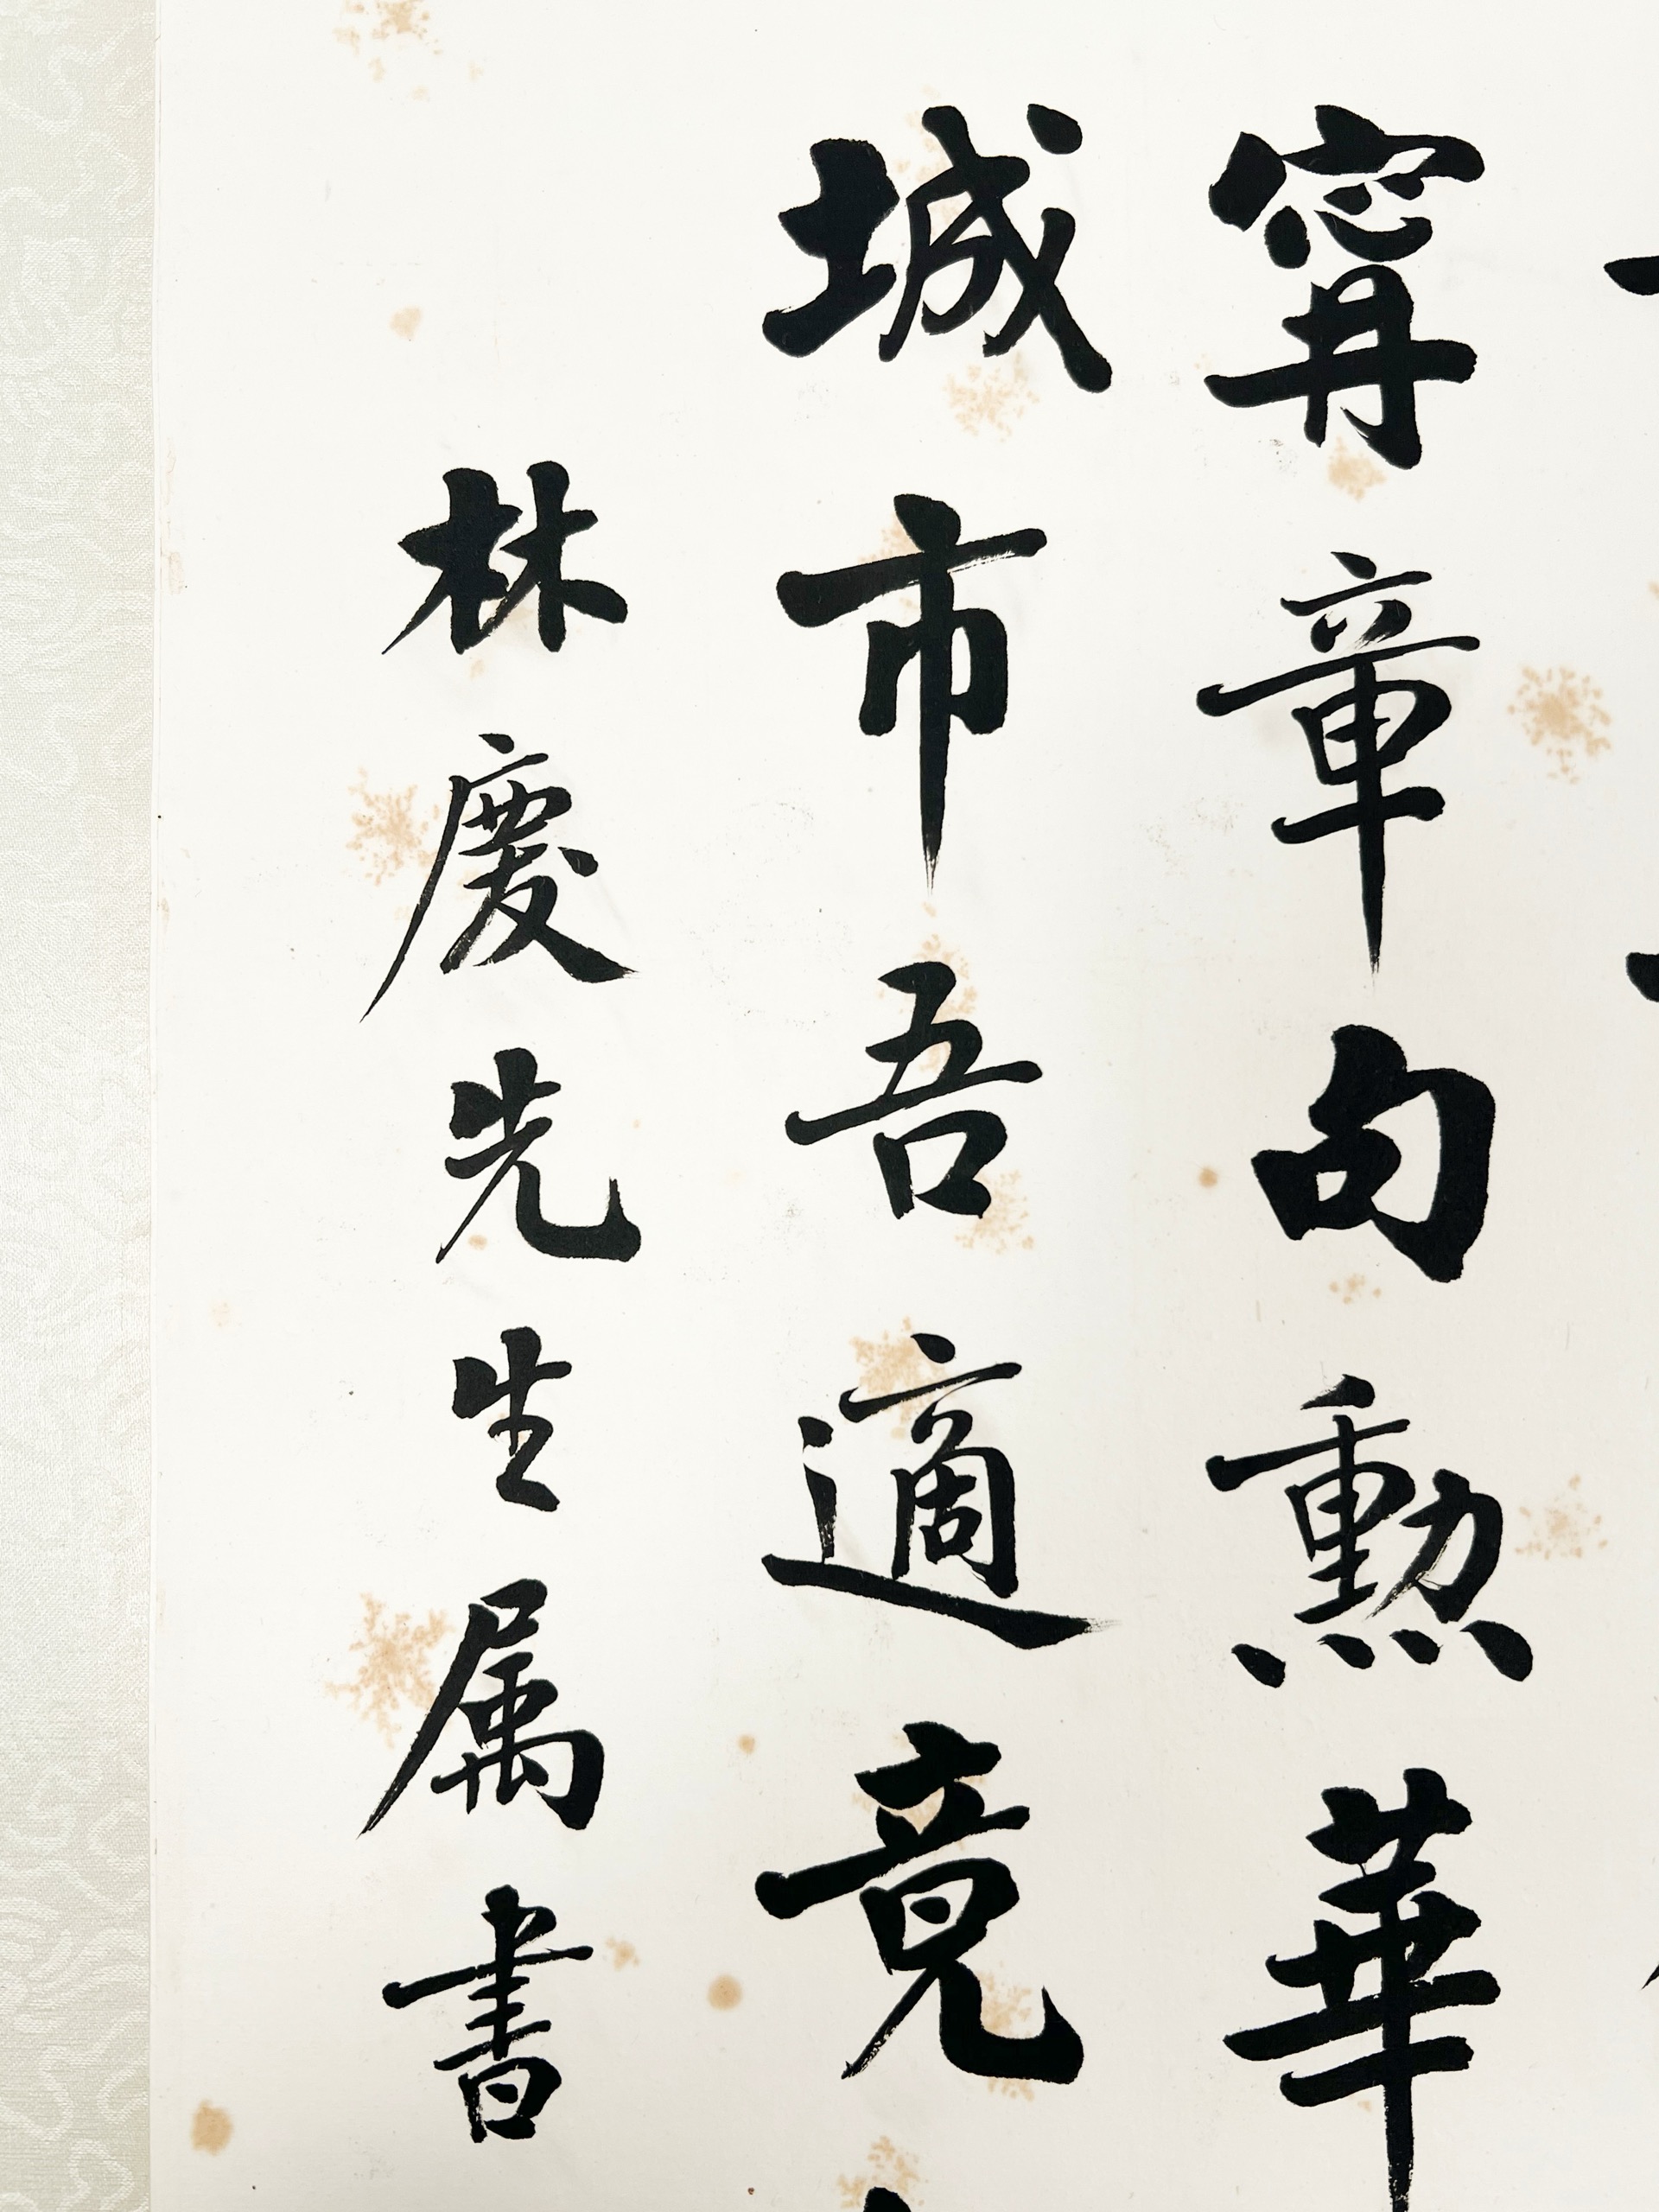 甯章句勳華
城市吾適竟
林慶先生属書